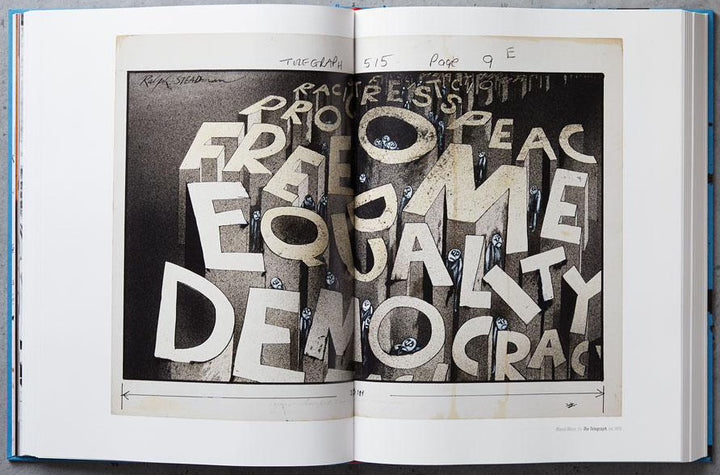 TELEGRAPH 515 Page 9 E
Ralph STEADman
PRO RESS
PEAC
FREEDOM
EQUALITY
DEMOCRACY
The Telegraph,